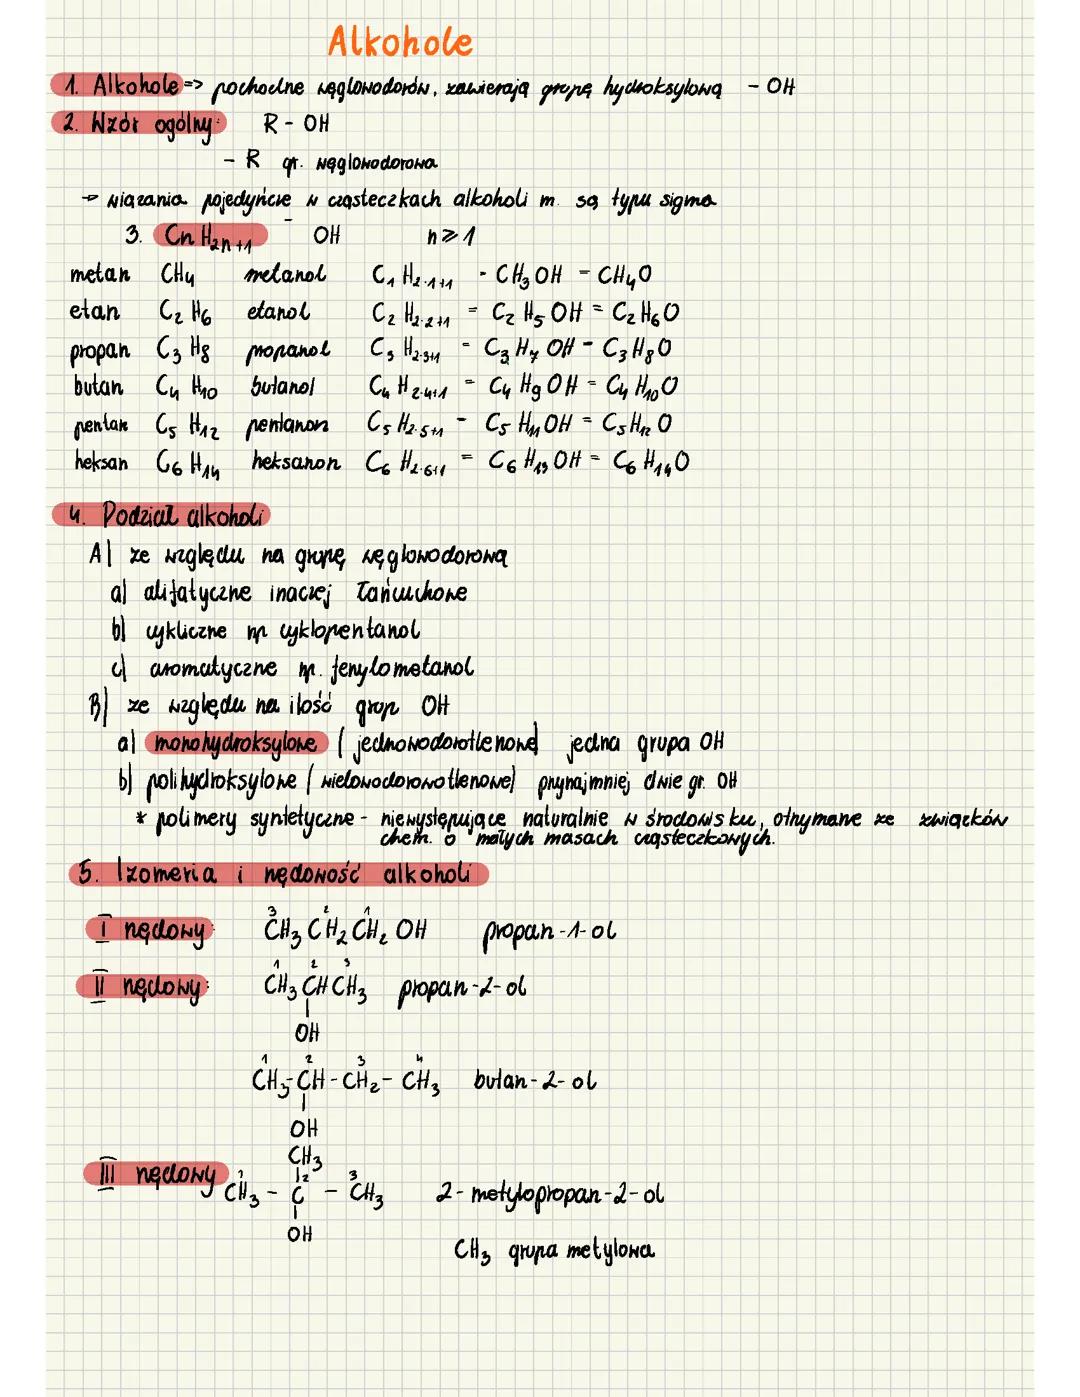 Alkohole
1. Alkohole => pochodne węglowodorów, zawierają grupę hydroksylową - OH
2. Wzór ogólny: R - OH
- R gr. węglowodorowa
→ wiązania pojedyńcze w cząsteczkach alkoholi m. są typu sigma
3. CnH2n+1 OH n ⩾ 1
metan CH4 metanol C1H2·1+1 - CH3OH - CH4O
etan C2H6 etanol C2H2·2+1 = C2H5OH = C2H6O
propan C3H8 propanol C3H2·3+1 - C3H7OH - C3H8O
butan C4H10 butanol C4H2·4+1 - C4H9OH - C4H10O
pentan C5H12 pentanon C5H2·5+1 - C5H11OH = C5H12O
heksan C6H14 heksanon C6H2·6+1 = C6H13OH = C6H14O
4. Podział alkoholi
A) ze względu na grupę węglowodorową
a) alifatyczne inaczej łańcuchowe
b) cykliczne np cyklopentanol
c) aromatyczne np. fenylometanol
B) ze względu na ilość grup OH
a) monohydroksylowe (jednowodorotlenowe) jedna grupa OH
b) polihydroksylowe (wielowodorowotlenowe) przynajmniej dwie gr. OH
* polimery syntetyczne - niewystępujące naturalnie w środowisku, otrzymane ze związków
chem. o małych masach cząsteczkowych.
5. Izomeria i rzędowość alkoholi
3 2 1
I rzędowy: CH3 CH2 CH2 OH propan-1-ol
1 2 3
II rzędowy: CH3 CH CH3 propan-2-ol
OH
1 2 3 4
CH3-CH-CH2-CH3 butan-2-ol
OH
CH3
III rzędowy 1 2 3
CH3 - C - CH3 2-metylopropan-2-ol
OH
CH3 grupa metylowa